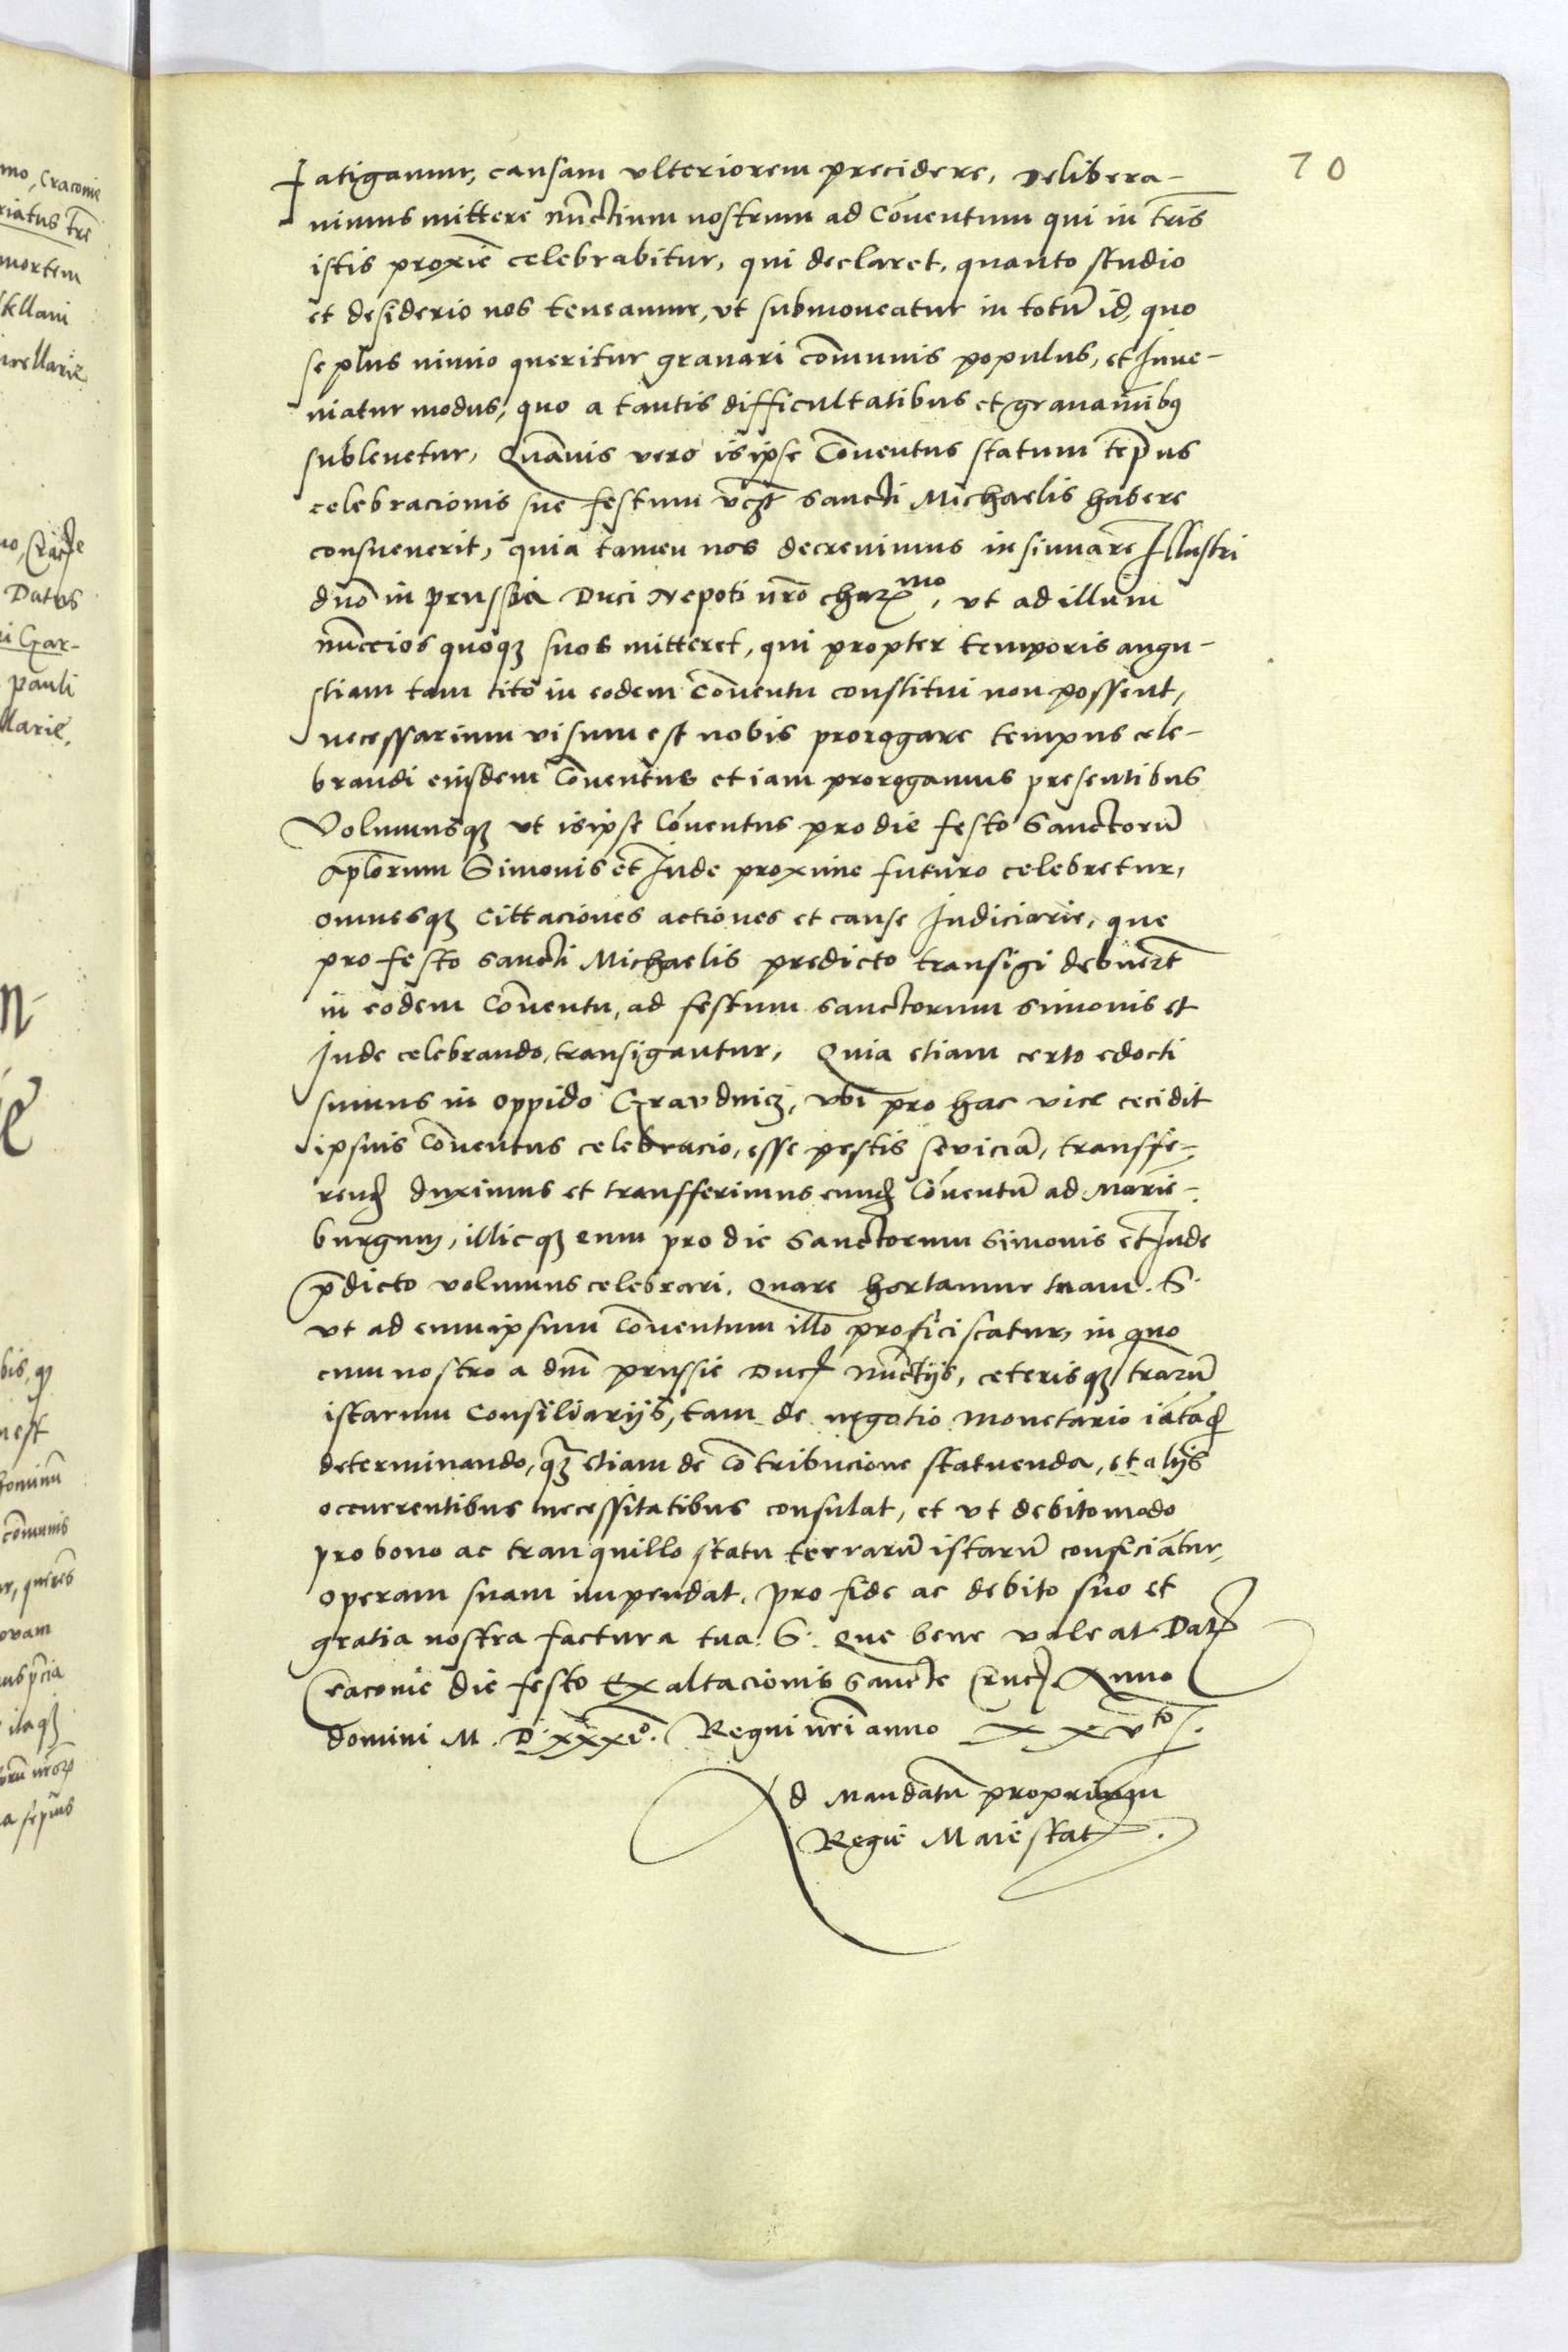 70
fatigamur, causam vlteriorem precidere, Delibera-
uimus mittere nu̅ctium nostrum ad Co̅uentum qui in tr̅is
istis proxi̅e celebrabitur, qui declaret, quanto studio
et desiderio nos teneamur, vt submoueatur in totu̅ id, quo
se plus nimio queritur grauari co̅munis populus, et Inue-
niatur modus, quo a tantis difficultatibus et grauami̅bus
subleuetur, Qua̅uis vero is ipse Co̅uentus statum te̅pus
celebracionis sue festum vcz̅ sancti Michaelis habere
consueuerit, quia tamen nos decreuimus insinuare Illustri
dn̅o in prussia Duci Nepoti nr̅o charmo, vt ad illum
nu̅ccios quoqz suos mitteret, qui propter temporis angu-
stiam tam cito in eodem Co̅uentu constitui non possent,
necessarium visum est nobis prorogare tempus cele-
brandi eiusdem Co̅uentus et iam prorogamus presentibus
Volumusqz vt is ipse Co̅uentus pro die festo Sanctoru̅
Apl̅orum Simonis et Iude proxime futuro celebretur,
omnesqz cittaciones actiones et cause Iudiciarie, que
pro festo sancti Michaelis predicto transigi debuer̅t
in eodem Co̅uentu, ad festum sanctorum simonis et
Iude celebrando, transigantur, Quia etiam certo edocti
sumus in oppido Graudnicz, vbi pro hac vice cecidit
ipsius Co̅uentus celebracio, esse pestis seuicia̅, transfe-
rend duximus et transferimus eund Co̅uentu̅ ad Marie̅-
burgum, illicqz eum pro die Sanctorum Simonis et Iude
p̅dicto volumus celebrari. Quare hortamur tuam. S.
vt ad eum ipsum Co̅uentum illo proficiscatur, in quo
cum nostro a dn̅i prussie Duc nu̅ctijs, ceterisqz tr̅aru̅
istarum Consiliarijs, tam de negotio monetario
determinando, qz̅ etiam de Co̅tribucione statuenda, et alijs
occurrentibus necessitatibus consulat, et vt debito modo
pro bono ac tranquillo statu terraru̅ istaru̅ conficia̅tur,
operam suam impendat, pro fide ac debito suo et
gratia nostra factura tua. S. Que bene valeat. Dat
Cracouie die festo Exaltacionis sancte Cruc. Anno
domini M. D. xxxio. Regni nr̅i anno xxvto.
Ad Mandatu̅ proprium
Regie Maiestat.